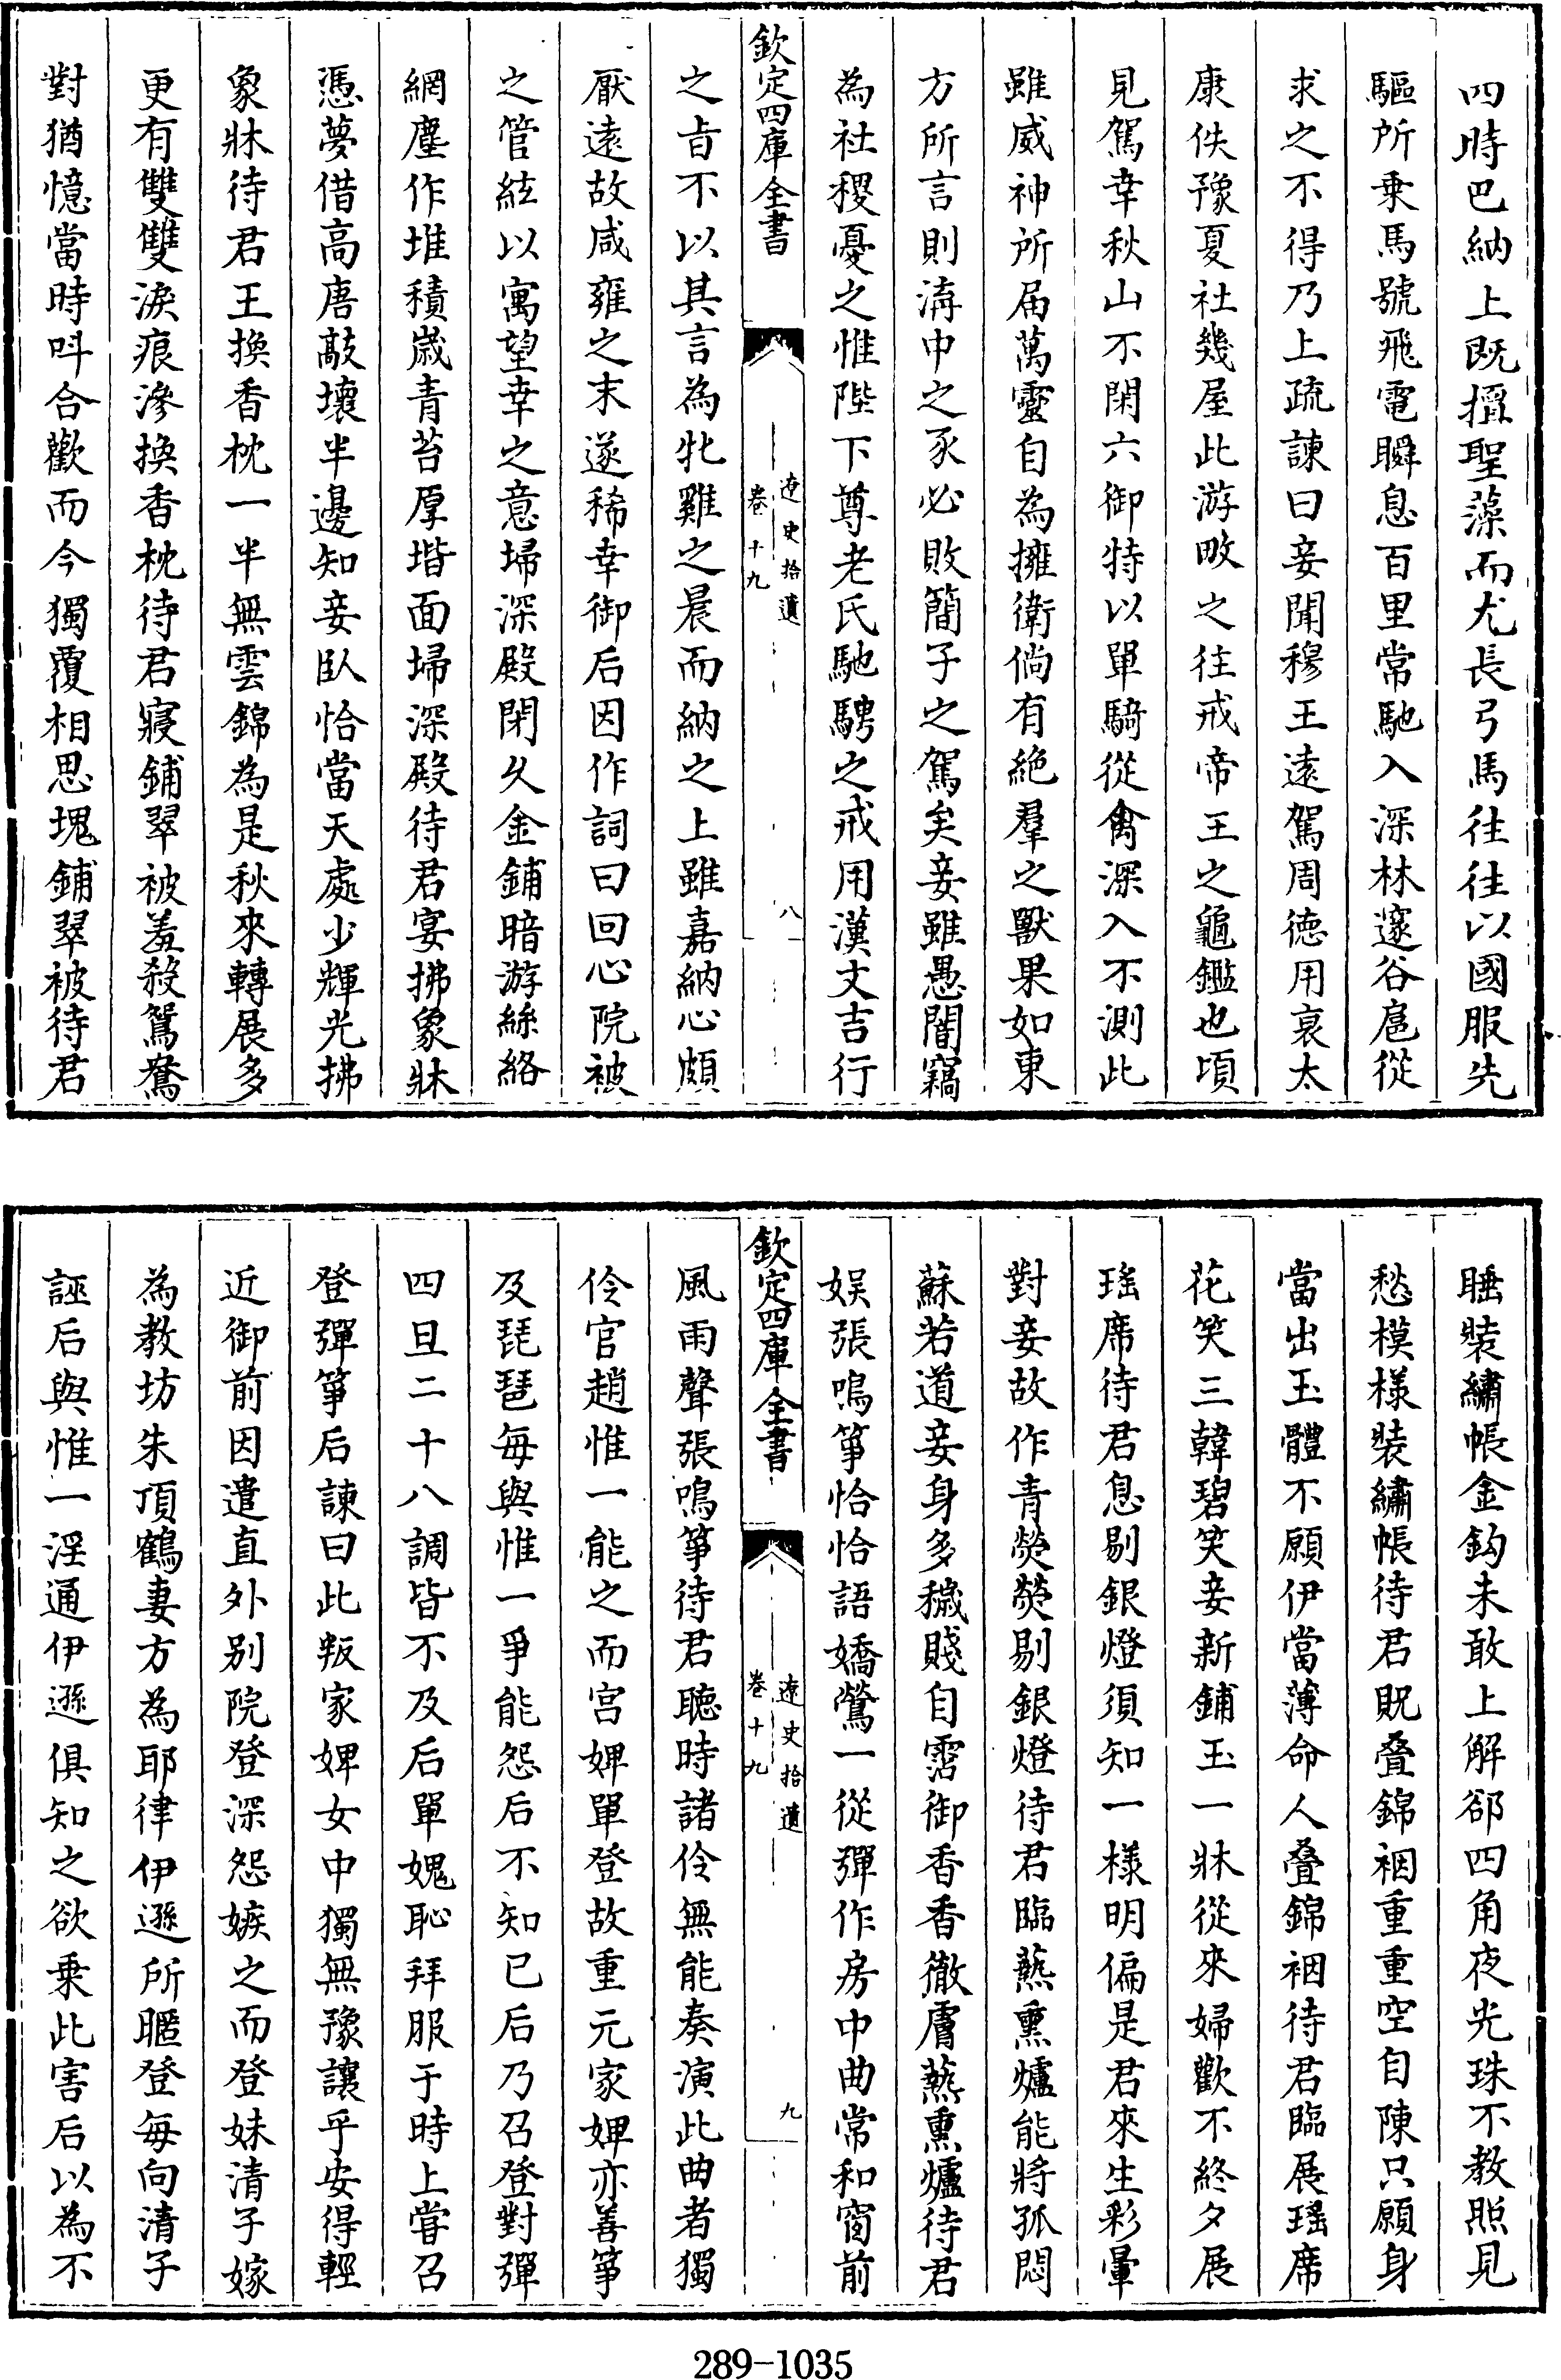 四時巴納上既擅聖藻而尤長弓馬往往以國服先
驅所乗馬號飛電瞬息百里常馳入深林邃谷扈從
求之不得乃上疏諫曰妾聞穆王遠駕周徳用衰太
康佚豫夏社幾屋此游畋之往戒帝王之龜鑑也頃
見駕幸秋山不閑六御特以單騎從禽深入不測此
雖威神所届萬靈自為擁衛倘有絶羣之獸果如東
方所言則溝中之豕必敗簡子之駕矣妾雖愚闇竊
為社稷憂之惟陛下尊老氏馳騁之戒用漢文吉行
欽定四庫全書
遼史拾遺
卷十九
八
之㫖不以其言為牝雞之晨而納之上雖嘉納心頗
厭遠故咸雍之末遂稀幸御后因作詞曰回心院被
之管絃以寓望幸之意埽深殿閉久金鋪暗游絲絡
網塵作堆積歳青苔厚堦面埽深殿待君宴拂象牀
憑夢借高唐敲壊半邊知妾臥恰當天處少輝光拂
象牀待君王換香枕一半無雲錦為是秋來轉展多
更有雙雙淚痕滲換香枕待君寢鋪翠被羞殺鴛鴦
對猶憶當時呌合歡而今獨覆相思塊鋪翠被待君
睡裝繡帳金鈎未敢上解郤四角夜光珠不教照見
愁模様裝繡帳待君貺叠錦裀重重空自陳只願身
當出玉體不願伊當薄命人叠錦裀待君臨展瑶席
花笑三韓碧笑妾新鋪玉一牀從來婦歡不終夕展
瑶席待君息剔銀燈須知一様明偏是君來生彩暈
對妾故作青熒熒剔銀燈待君臨爇熏爐能將孤悶
蘇若道妾身多穢賤自霑御香香徹膚爇熏爐待君
娱張鳴箏恰恰語嬌鶯一從彈作房中曲常和窗前
欽定四庫全書
遼史拾遺
卷十九
九
風雨聲張鳴箏待君聽時諸伶無能奏演此曲者獨
伶官趙惟一能之而宫婢單登故重元家婢亦善箏
及琵琶每與惟一爭能怨后不知已后乃召登對彈
四旦二十八調皆不及后單媿恥拜服于時上嘗召
登彈箏后諫曰此叛家婢女中獨無豫讓乎安得輕
近御前因遣直外别院登深怨嫉之而登妹清子嫁
為教坊朱頂鶴妻方為耶律伊遜所暱登每向清子
誣后與惟一淫通伊遜俱知之欲乗此害后以為不
289-1035